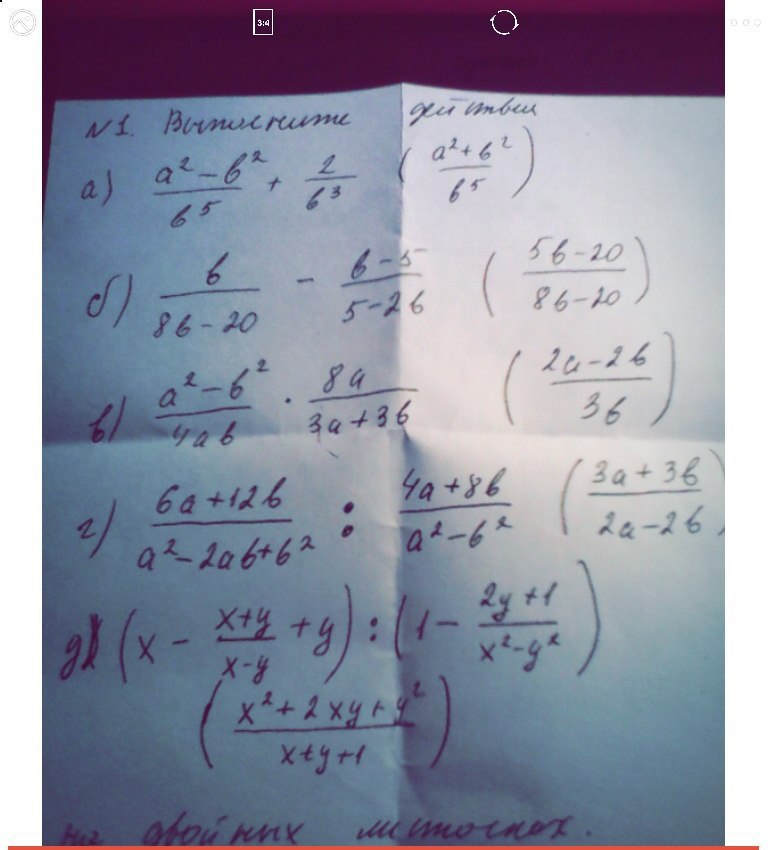 3:4
№1. Выполните действия
а) (a² - b²)/b⁵ + 2/b³ ((a² + b²)/b⁵)
б) b/(8b - 20) - (b - 5)/(5 - 2b) ((5b - 20)/(8b - 20))
в) (a² - b²)/(4ab) · 8a/(3a + 3b) ((2a - 2b)/(3b))
г) (6a + 12b)/(a² - 2ab + b²) : (4a + 8b)/(a² - b²) ((3a + 3b)/(2a - 2b))
д) (x - (x+y)/(x-y) + y) : (1 - (2y + 1)/(x² - y²))
((x² + 2xy + y²)/(x+y+1))
на двойных листочках.